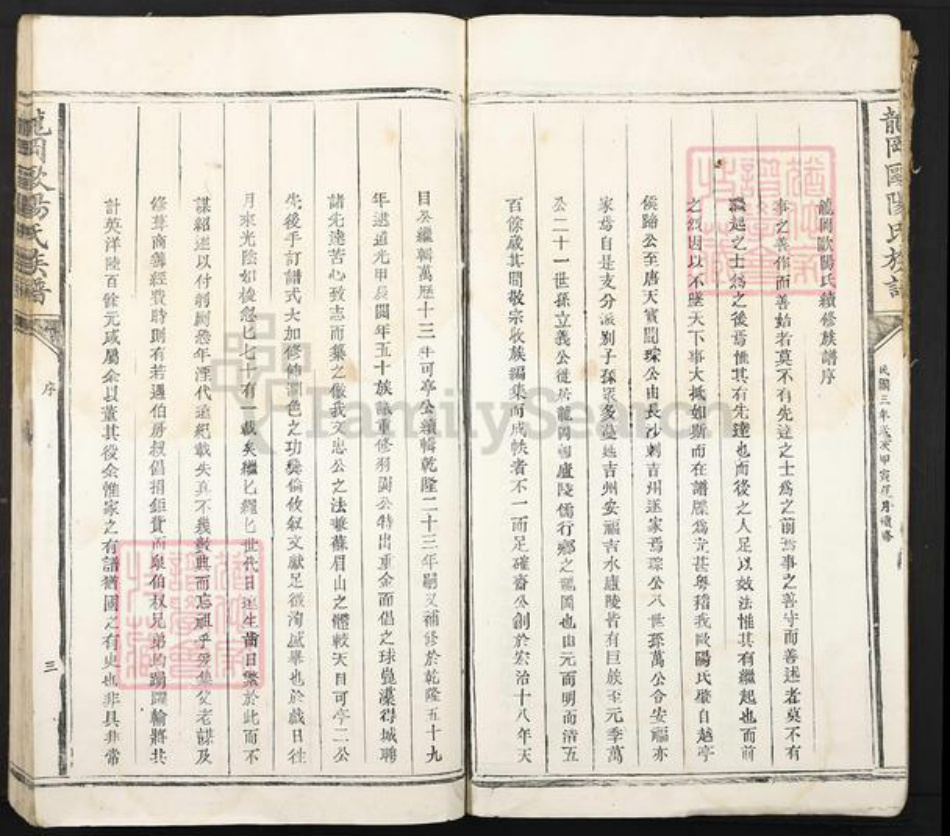 龍岡歐陽氏族譜
民國三年歲次甲寅 月續修
龍岡歐陽氏續修族譜序
事之善作而善始者莫不有先達之士爲之前焉事之善守而善述者莫不有
繼起之士爲之後焉惟其有先達也而後之人足以效法惟其有繼起也而前
之烈因以不墜天下事大抵如斯而在譜牒爲尤甚粤稽我歐陽氏肇自越亭
侯蹄公至唐天寶間琮公由長沙刺吉州遂家焉琮公八世孫萬公令安福亦
家焉自是支分派别子孫眾多蔓延吉州安福吉水廬陵皆有巨族至元季萬
公二十一世孫立義公徙居龍岡 廬陵儒行鄉之龍岡也由元而明而清五
百餘歲其間敬宗收族編集而成帙者不一而足確齋公創於宏治十八年天
目公繼輯萬歷十三年可亭公續輯乾隆二十三年嗣又補修於乾隆五十九
年逮道光甲辰閱年五十族議重修 公特出重金而倡之球 得城聘
諸先達苦心致志而纂之倣我文忠公之法兼蘇眉山之體較天目可亭二公
先後手訂譜式大加修飾潤色之功彝倫攸叙文獻足徵洵盛舉也於戲日往
月來光陰如梭忽忽七十有一載矣繼繼繩繩世代日遠生齒日繁於此而不
謀紹述以付剞劂恐年湮代遠紀載失真不幾數典而忘祖乎爰集父老謀及
修葺商籌經費時則有若遇伯房叔倡捐鉅貲而眾伯叔兄弟均踴躍輸將共
計英洋陸百餘元咸屬余以董其役余惟家之有譜猶國之有史也非具非常
龍岡歐陽氏族譜
序
三
FamilySearch